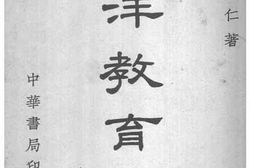 仁著
洋教育
中華書局印